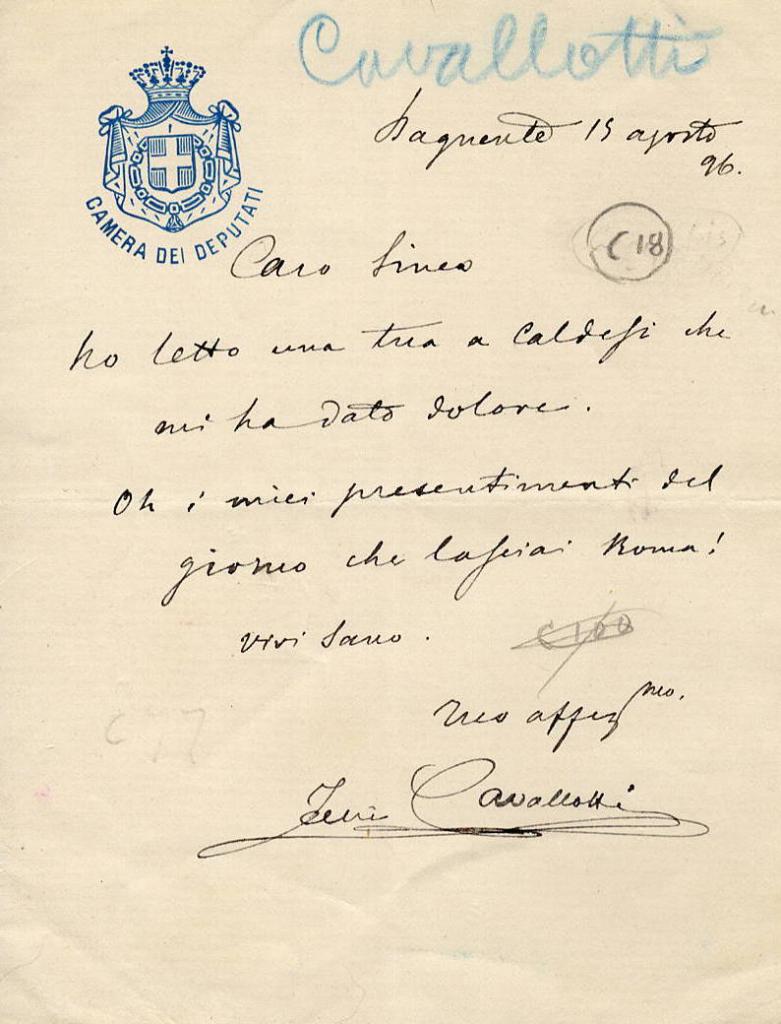 Cavallotti
Dagnente 15 agosto
96.
CAMERA DEI DEPUTATI
C 18
Caro Sineo
ho letto una tua a Caldesi che
mi ha dato dolore.
Oh i miei presentimenti del
giorno che lasciai Roma!
vivi sano.
C 100
tuo affez mo.
C 77
Felice Cavallotti